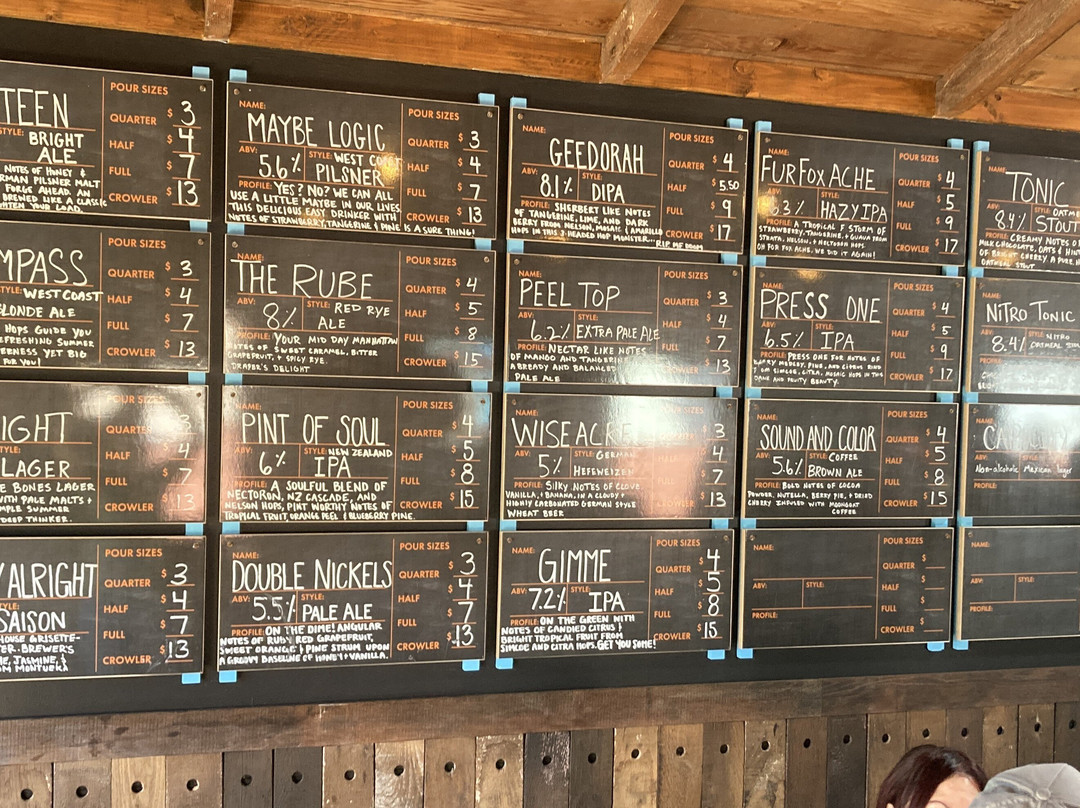 TEEN
STYLE: BRIGHT
ALE
NOTES OF HONEY &
MAN PILSNER MALT
FORGE AHEAD AN
BREWED LIKE A CLASSIC
YOUR LOAD.
POUR SIZES
QUARTER $3
HALF $4
FULL $7
CROWLER $13
NAME:
MAYBE LOGIC
ABV: 5.6% STYLE: WEST COAST
PILSNER
PROFILE: YES? NO? WE CAN ALL
USE A LITTLE MAYBE IN OUR LIVES
THIS DELICIOUS EASY DRINKER WITH
NOTES OF STRAWBERRY, TANGERINE, & PINE IS A SURE THING!
POUR SIZES
QUARTER $3
HALF $4
FULL $7
CROWLER $13
NAME:
GEEDORAH
ABV: 8.1% STYLE: DIPA
PROFILE: SHERBERT LIKE NOTES
OF TANGERINE, LIME, AND DARK
BERRY FROM NELSON, MOSAIC & AMARILLO
HOPS IN THIS 3 HEADED HOP MONSTER... RIP MF DOOM
POUR SIZES
QUARTER $4
HALF $5.50
FULL $9
CROWLER $17
NAME:
FURFOXACHE
ABV: 3% STYLE: HAZY IPA
PROFILE: A TROPICAL F STORM OF
STRAWBERRY, TANGERINE, & GUAVA FROM
STRATA, NELSON, & NECTORON HOPS
OH FOX ACHE, WE DID IT AGAIN!
POUR SIZES
QUARTER $4
HALF $5
FULL $9
CROWLER $17
NAME:
TONIC
ABV: 8.4% STYLE: OATM
STOUT
PROFILE: CREAMY NOTES O
MILK CHOCOLATE, OATS & HIN
OF BRIGHT CHERRY A PURE N
OATMEAL STOUT
MPASS
STYLE: WEST COAST
LONDE ALE
HOPS GUIDE YOU
EFRESHING SUMMER
ENESS YET BIG
FOR YOU!
POUR SIZES
QUARTER $3
HALF $4
FULL $7
CROWLER $13
NAME:
THE RUBE
ABV: 8% STYLE: RED RYE
ALE
PROFILE: YOUR MID DAY MANHATTAN
NOTES OF SWEET CARAMEL, BITTER
GRAPEFRUIT, & SPICY RYE
DRAPER'S DELIGHT
POUR SIZES
QUARTER $4
HALF $5
FULL $8
CROWLER $15
NAME:
PEEL TOP
ABV: 6.2% STYLE: EXTRA PALE ALE
PROFILE: NECTAR LIKE NOTES
OF MANGO AND TANGERINE
A BREADY AND BALANCED
PALE ALE
POUR SIZES
QUARTER $3
HALF $4
FULL $7
CROWLER $13
NAME:
PRESS ONE
ABV: 6.5% STYLE: IPA
PROFILE: PRESS ONE FOR NOTES OF
PINE, AND CITRUS
SIMCOE, CITRA, MOSAIC HOPS IN THIS
DANK AND FRUITY BEAUTY.
POUR SIZES
QUARTER $4
HALF $5
FULL $9
CROWLER $17
NAME:
NITRO TONIC
ABV: 8.4% STYLE: NITRO
OATMEAL
PROFILE:
IGHT
STYLE:
LAGER
E BONES LAGER
WITH PALE MALTS &
MPLE SUMMER
DEEP THINKER.
POUR SIZES
QUARTER $3
HALF $4
FULL $7
CROWLER $13
NAME:
PINT OF SOUL
ABV: 6% STYLE: NEW ZEALAND
IPA
PROFILE: A SOULFUL BLEND OF
NECTORON, NZ CASCADE, AND
NELSON HOPS, PINT WORTHY NOTES OF
TROPICAL FRUIT, ORANGE PEEL & BLUEBERRY PINE.
POUR SIZES
QUARTER $4
HALF $5
FULL $8
CROWLER $15
NAME:
WISEACRE
ABV: 5% STYLE: GERMAN
HEFEWEIZEN
PROFILE: SILKY NOTES OF CLOVE,
VANILLA, & BANANA, IN A CLOUDY &
HIGHLY CARBONATED GERMAN STYLE
WHEAT BEER
POUR SIZES
QUARTER $3
HALF $4
FULL $7
CROWLER $13
NAME:
SOUND AND COLOR
ABV: 5.6% STYLE: COFFEE
BROWN ALE
PROFILE: BOLD NOTES OF COCOA
POWDER, NUTELLA, BERRY PIE, & DRIED
CHERRY INFUSED WITH MOONGOAT
COFFEE
POUR SIZES
QUARTER $4
HALF $5
FULL $8
CROWLER $15
NAME:
Non-alcoholic Mexican lager
PROFILE:
YALRIGHT
STYLE:
SAISON
HOUSE GRISETTE-
ER. BREWER'S
JASMINE, &
MONTUEKA
POUR SIZES
QUARTER $3
HALF $4
FULL $7
CROWLER $13
NAME:
DOUBLE NICKELS
ABV: 5.5% STYLE: PALE ALE
PROFILE: ON THE DIME! ANGULAR
NOTES OF RUBY RED GRAPEFRUIT,
SWEET ORANGE & PINE STRUM UPON
A GROOVY BASELINE OF HONEY & VANILLA.
POUR SIZES
QUARTER $3
HALF $4
FULL $7
CROWLER $13
NAME:
GIMME
ABV: 7.2% STYLE: IPA
PROFILE: ON THE GREEN WITH
NOTES OF CANDIED CITRUS &
BRIGHT TROPICAL FRUIT FROM
SIMCOE AND CITRA HOPS. GET YOU SOME!
POUR SIZES
QUARTER $4
HALF $5
FULL $8
CROWLER $15
NAME:
ABV: STYLE:
PROFILE:
POUR SIZES
QUARTER $
HALF $
FULL $
CROWLER $
NAME:
ABV: STYLE:
PROFILE: